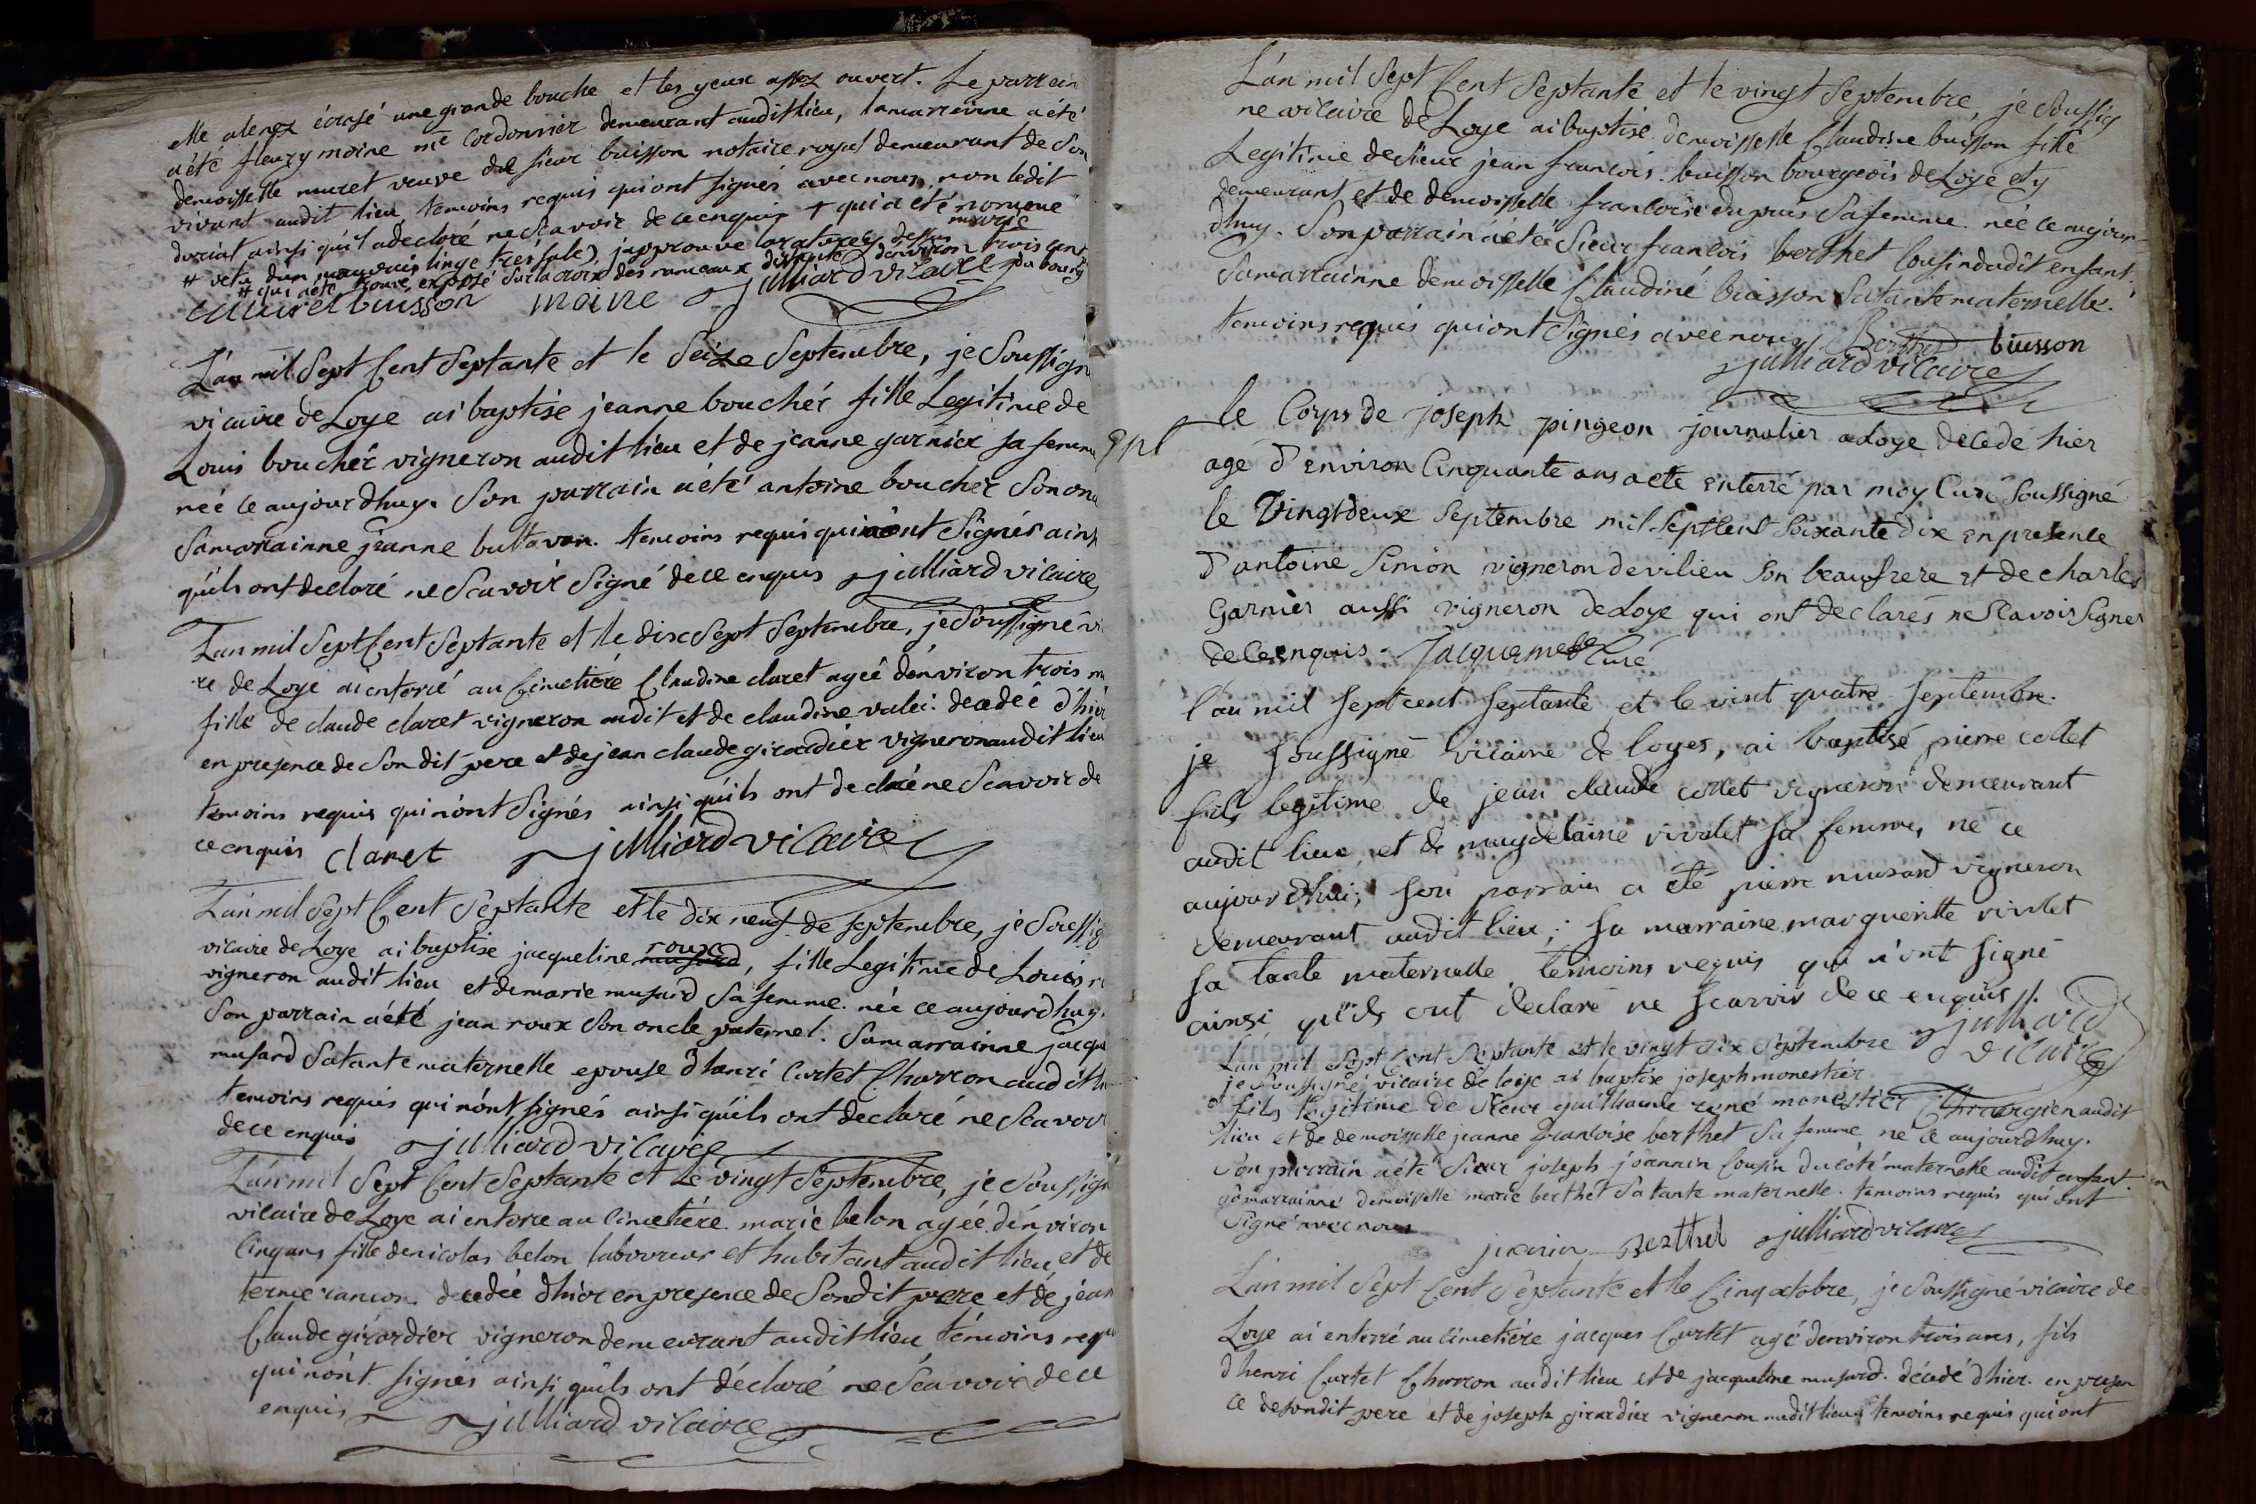 elle alenez écrasé une grande bouche et les yeux assez ouvert. Le parrain
aété fleury moine mé Cordonnier demeurant audit lieu, la marrainne a été
demoisselle muret veuve de sieur buisson notaire royal demeurant de Son
vivant audit lieu temoins requis qui ont signés avec nous non ledit
ainsi qu'il adeclaré ne Scavoir de ce enquis + qui a été nommé
marie
# vetu d'un mauvais linge trés sale, japprouve la rature cy dessus
# qui aété trouvé exposé sur la croix des rameaux distante d'environ trois cent
du bourg
muret buisson moine julliard vicaire
L'an mil Sept Cent Septante et le Seize Septembre, je Soussign
vicaire de Loye ai baptisé jeanne bouchér fille Legitime de
Louis bouchér vigneron audit lieu et de jeanne garnier sa femme
née ce aujourdhuy. Son parrain aété antoine boucher Son on
Samarrainne jeanne temoins requis qui nont Signés ains
quils ont declaré ne Scavoir Signé de ce enquis julliard vicaire
L'an mil Sept Cent Septante et le dix Sept Septembre, je Soussigné vi
re de Loye ai enterré au Cimetiére Claudine claret agée dénviron trois
fille de claude claret vigneron audit et de claudine decedée d'hier
en presence de Son dit pere et de jean claude girardier vigneron audit lieu
temoins requis qui nónt Signés ainsi qu'ils ont declaré ne Scavoir de
ce enquis claret julliard vicaire
L'an mil Sept Cent Septante et le dix neuf de septembre, je Soussig
roux
vicaire de Loye ai baptisé jacqueline musard, fille Legitime de Louis r
vigneron audit lieu et de marie musard Sa femme. née ce aujourdhuy.
Son parrain aété jean roux Son oncle paternel. Samarrainne jacqu
musard Satante maternelle epouse d'henri Curtet Charron audit li
temoins requis qui nónt signés ainsi qu'ils ont declaré ne Scavoir
de ce enquis julliard vicaire
L'an mil Sept Cent Septante et le vingt Septembre, je Soussign
vicaire de Loye ai enterré au Cimetiére marie belon agée dénviron
Cinq ans fille de nicolas belon laboureur et habitant audit lieu et de
decedée d'hier en presence de Sondit pere et de jean
Claude girardier vigneron demeurant audit lieu témoins requ
qui nónt signés ainsi qu'ils ont déclaré ne Scavoir de ce
enquis julliard vicaire
L'an mil Sept Cent Septante et le vingt Septembre, je Soussig
ne vicaire de Loye ai baptisé demoisselle Claudine buisson fille
Legitime de Sieur jean francois buisson bourgeois de Loye et y
demeurant et de demoisselle francoise dupuis Safemme née ce aujour-
dhuy. Son parrain aété Sieur francois berthet Cousin dudit enfant.
Samarrainne demoisselle Claudine buisson Satante maternelle.
temoins requis qui ont Signés avec nous. Berthet buisson
julliard vicaire
le Corps de joseph pingeon journalier a Loye decedé hier
agé d'environ Cinquante ans a eté enterré par moy Curé Soussigné
le Vingtdeux Septembre mil Sept Cent Soixante dix en presence
d'antoine Simon vigneron de vilieu son beaufrere et de charles
Garnier aussi vigneron de Loye qui ont declarés ne Scavoir Signer
de Ce enquis. Curé
l'an mil sept cent septante et le vint quatre septembre.
je soussigné vicaire de loyes, ai baptisé pierre collet
fils legitime de jean claude collet vigneron demeurant
audit lieu, et de magdelaine vivolet sa femme, né ce
aujourdhui; son parrain a été pierre musard vigneron
demeurant audit lieu; sa marraine marguerite vivolet
sa tante maternelle temoins requis qui n'ont signé
ainsi qu'ils ont declaré ne scavoir de ce enquis.
julliard
vicaire
L'an mil Sept Cent Septante et le vingt Six Septembre
je Soussigné vicaire de loye ai baptisé joseph monestier
fils Legitime de Sieur guilhaume rené monestier Chirurgien audit
lieu et de demoisselle jeanne francoise berthet Sa femme né ce aujourdhuy.
Son parrain aété Sieur joseph joannin Cousin du coté maternelle audit enfant.
Samarrainne demoisselle marie berthet Satante maternelle. temoins requis qui ont
Signé avec nous
Berthet julliard vicaire
L'an mil Sept Cent Septante et le Cinq octobre, je Soussigné vicaire de
Loye ai enterré au Cimetiére jacques Curtet agé denviron trois ans, fils
d'henri Curtet Charron audit lieu et de jacqueline musard. décédé d'hier. en presen
ce desondit pere et de joseph girardier vigneron audit lieu temoins requis qui ont